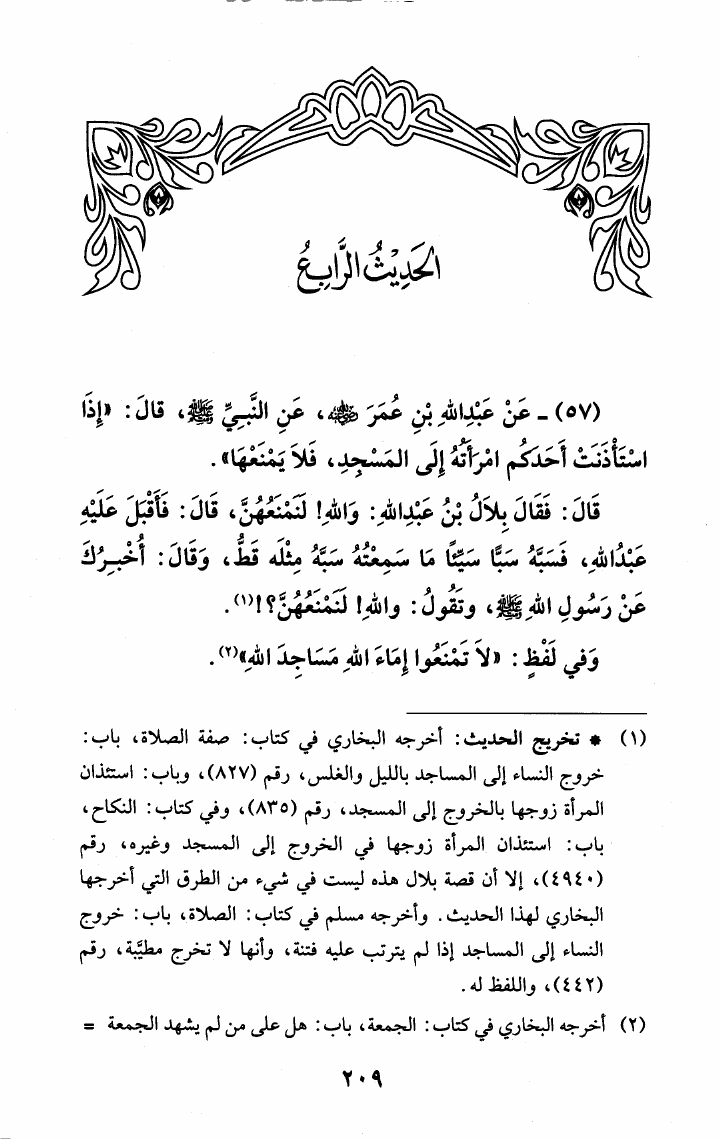 الحَدِيْثُ الرَّابِعُ
(٥٧) ـ عَنْ عَبْدِاللهِ بْنِ عُمَرَ ﵄، عَنِ النَّبِيِّ ﷺ، قالَ: «إِذَا
اسْتَأْذَنَتْ أَحَدَكُم امْرَأَتُهُ إِلَى المَسْجِدِ، فَلاَ يَمْنَعْهَا».
قَالَ: فَقَالَ بِلاَلُ بْنُ عَبْدِاللهِ: وَاللهِ! لَنَمْنَعُهُنَّ، قَالَ: فَأَقْبَلَ عَلَيْهِ
عَبْدُاللهِ، فَسَبَّهُ سَبًّا سَيِّئًا مَا سَمِعْتُهُ سَبَّهُ مِثْلَه قَطُّ، وَقَالَ: أُخْبِرُكَ
عَنْ رَسُولِ اللهِ ﷺ، وتَقُولُ: واللهِ! لَنَمْنَعُهُنَّ؟!(١).
وَفي لَفْظٍ: «لاَ تَمْنَعُوا إِمَاءَ اللهِ مَسَاجِدَ اللهِ»(٢).
(١) * تخريج الحديث: أخرجه البخاري في كتاب: صفة الصلاة، باب:
خروج النساء إلى المساجد بالليل والغلس، رقم (٨٢٧)، وباب: استئذان
المرأة زوجها بالخروج إلى المسجد، رقم (٨٣٥)، وفي كتاب: النكاح،
باب: استئذان المرأة زوجها في الخروج إلى المسجد وغيره، رقم
(٤٩٤٠)، إلا أن قصة بلال هذه ليست في شيء من الطرق التي أخرجها
البخاري لهذا الحديث. وأخرجه مسلم في كتاب: الصلاة، باب: خروج
النساء إلى المساجد إذا لم يترتب عليه فتنة، وأنها لا تخرج مطيَّبة، رقم
(٤٤٢)، واللفظ له.
(٢) أخرجه البخاري في كتاب: الجمعة، باب: هل على من لم يشهد الجمعة =
٢٠٩